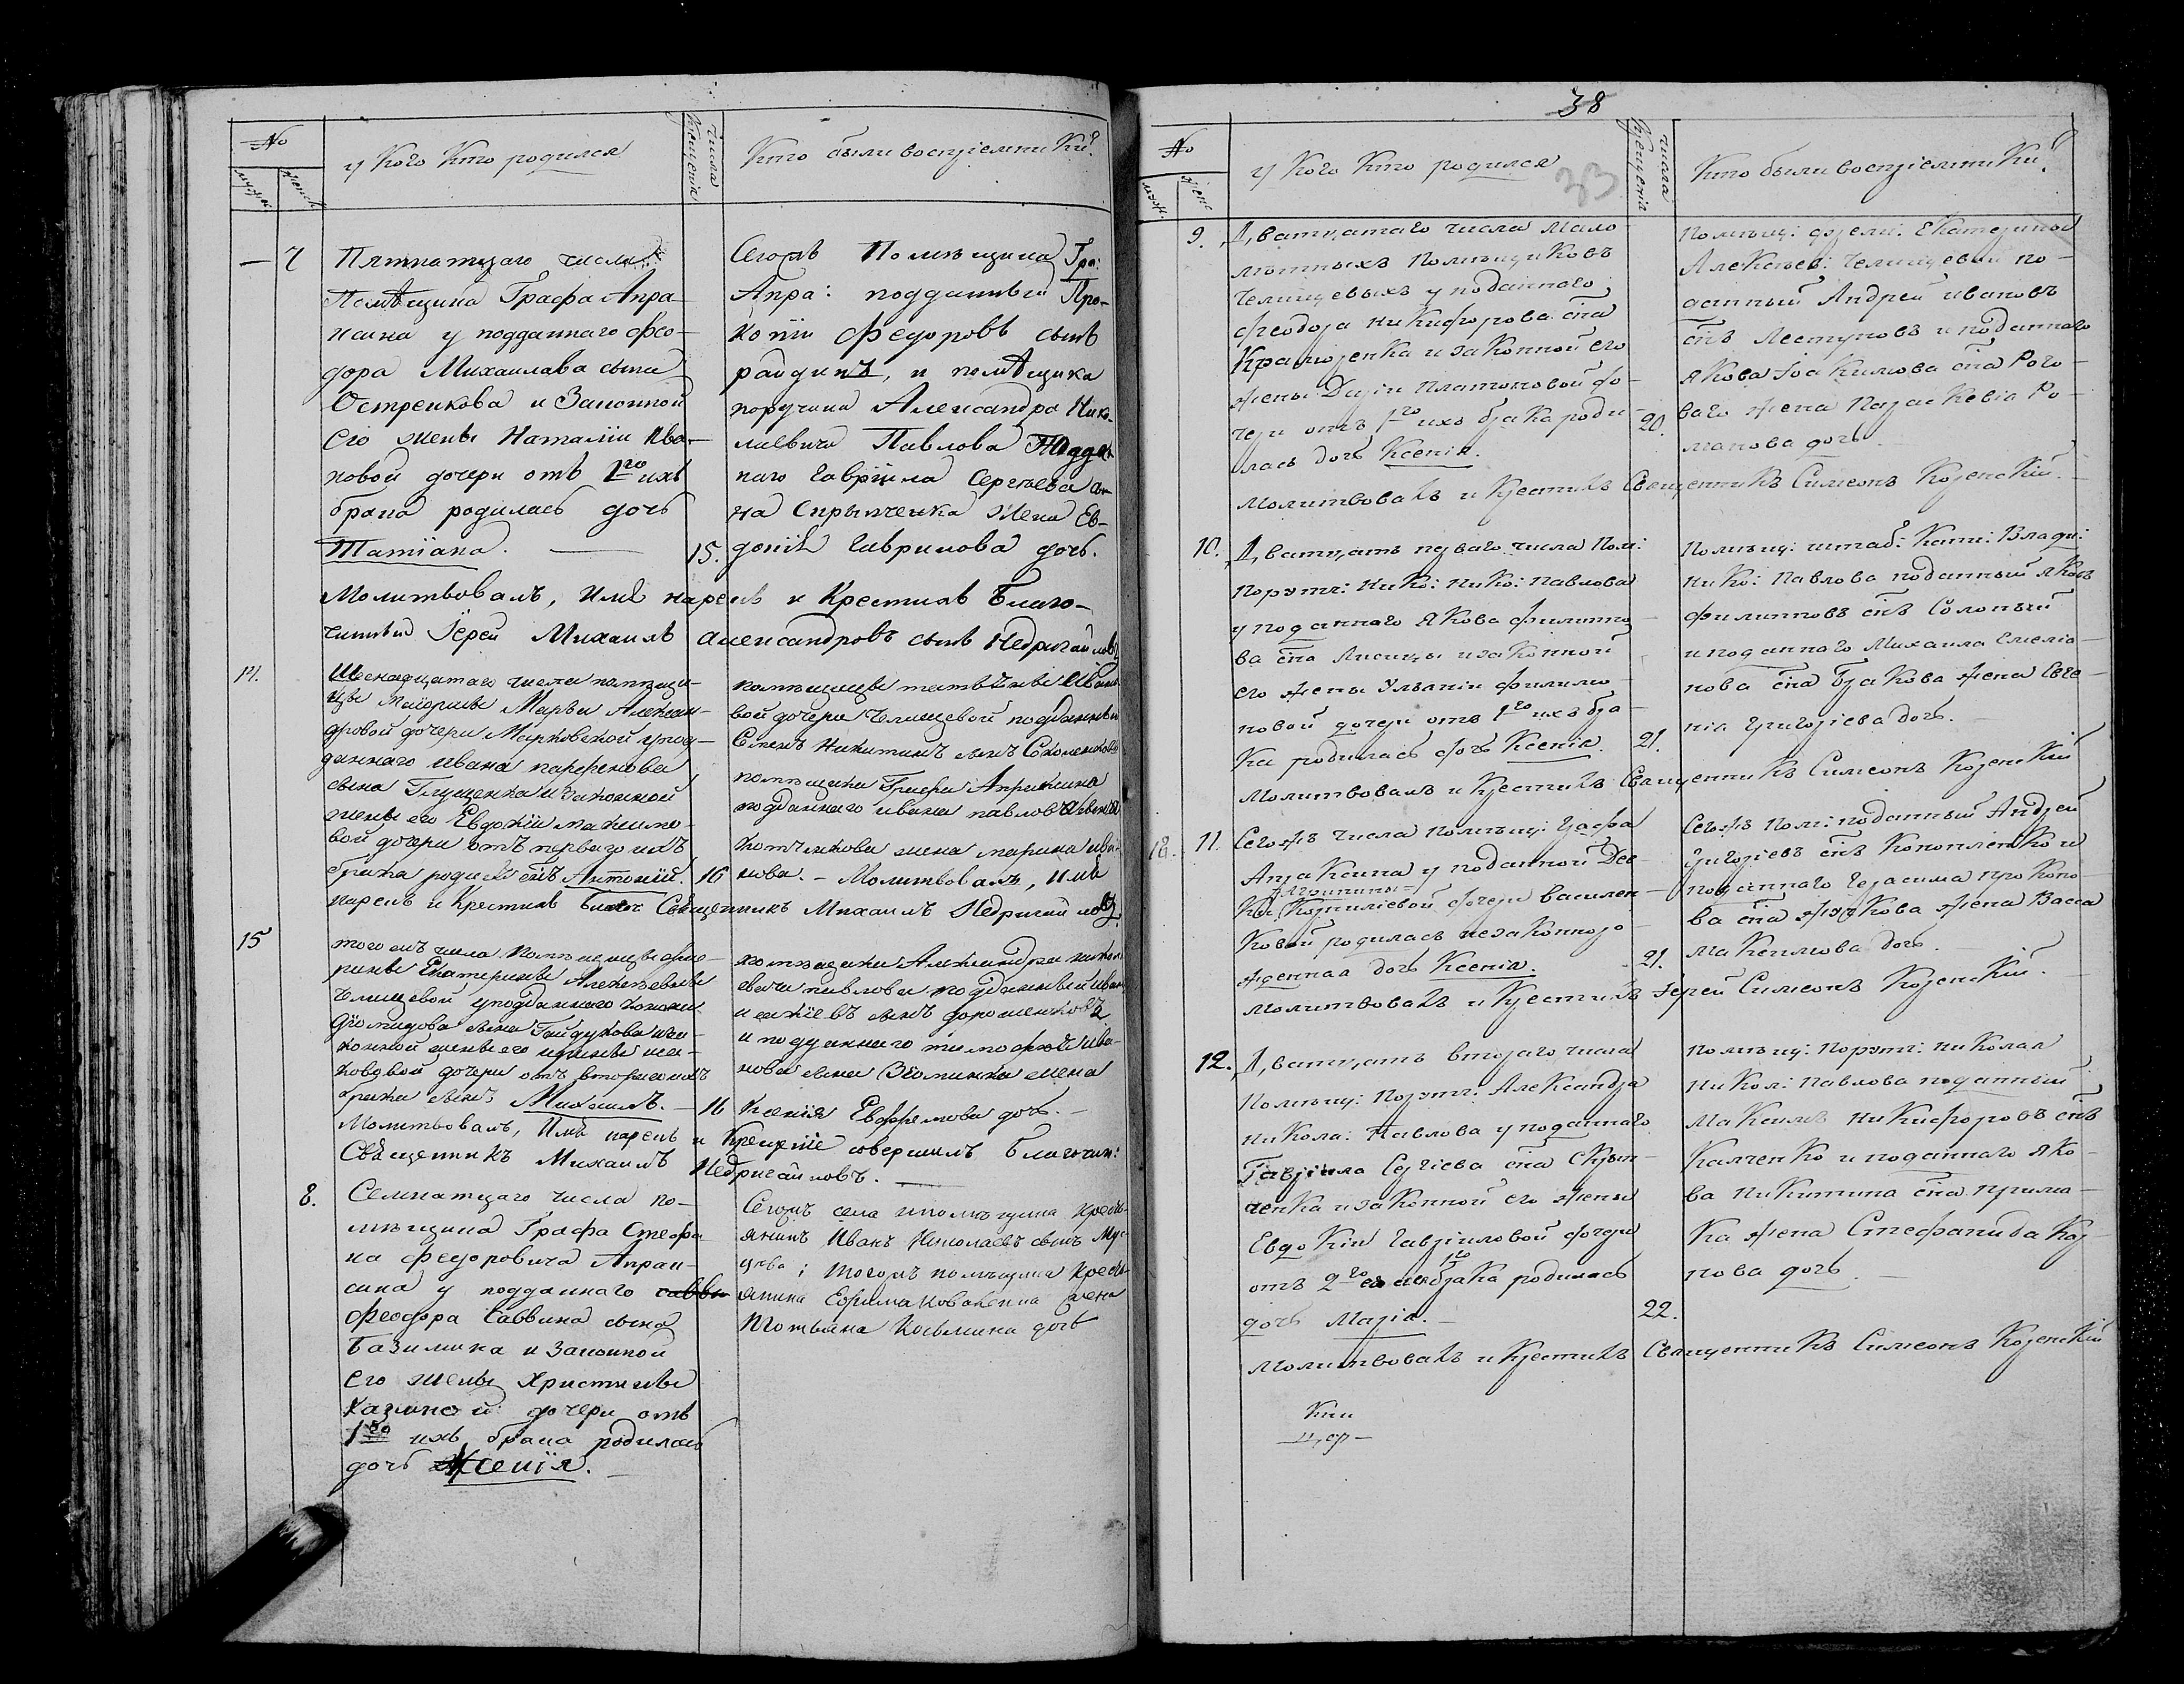 №
мужес.
женск.
у Кого Кто родился
числа Крещенія
Кто были воспріемники?
— 7
Пятнатцаго числа
Помѣщика Графа Апра-
ксина у подданнаго Фео-
дора Михаилова сына
Остренкова и Законной
Его жены Наталіи Ива-
новой дочери отъ 1го ихъ
брака родилась дочь
Татіана.
15.
Сегожъ Помѣщика Гра:
Апра: подданный Про-
копій Федоровъ сынъ
райдинъ, и помѣщика
поручика Александра Нико-
лаевича Павлова Поддан
наго Гавріила Сергѣева сы-
на Скрыпченка Жена Ев-
докія Гаврилова дочь.
Молитвовалъ, имя нарекъ и Крестилъ Благо-
чинный Іерей Михаилъ Александровъ сынъ Недригайловъ
14.
Шеснадцатаго числа помѣщи-
цы Маіорши Марьи Алексан-
дровой дочери Марковской у под-
даннаго Ивана парфенова
сына Глущенка и Законной
жены его Евдокіи максимо-
вой дочери отъ перваго ихъ
брака родился сынъ Антоній.
16
помѣщицы татьяны Ивано
вой дочери Челищевой подданный
Семенъ Никитинъ сынъ Соколенков
помѣщика Графа Апраксина
подданнаго ивана павлова сына
жена марина ива-
нова. - Молитвовалъ, имя
нарекъ и Крестилъ Благоч: Священникъ Михаилъ Недригайловъ
15
того жъ числа помѣщицы
Екатерины Алексѣевны
Челищевой у подданнаго
сына Гайдукова и за-
конной жены его ирины иса-
ковой дочери отъ втораго ихъ
брака сынъ Михаилъ.
16
помѣщика Александра никол
евича павлова подданный иван
сынъ дорошенковъ
и подданнаго тимофея ива-
нова сына жена
Ксенія Ефремова дочь.
Молитвовалъ, имя нарекъ и Крещеніе совершилъ Благочин:
Священникъ Михаилъ Недригайловъ.
8.
Семнатцаго числа по-
мѣщика Графа Стефа
на Федоровича Апрак-
сина у подданнаго саввы
Феодора Саввина сына
Базилика и Законной
Его жены Христины
дочери отъ
1го ихъ брака родилась
дочь Ксенія.
Сегожъ села и помѣщика Кресть-
янинъ Иванъ Николаевъ сынъ Му-
; тогожъ помѣщика Кресть-
янина Ефима жена
Татьяна Козьмина дочь
38
33
№
муж.
женс
у Кого Кто родился
числа Крещенія
Кто были воспріемники?
9.
Дватцатаго числа Мало-
лѣтныхъ Помѣщиковъ
Челищевыхъ у поданнаго
Феодора Никифорова сна
Крамаренка и законной его
жены Даріи Платоновой до-
чери отъ 1го ихъ брака роди-
лась дочь Ксенія.
20.
Помѣщ: Екатерины
Алексѣев: Челищевой по-
данный Андрей ивановъ
снъ Лестуновъ и поданнаго
якова Іоакимова сна Рого-
ваго жена Параскевіа Ро-
манова дочь.
Молитвовалъ и Крестилъ Священникъ Симеонъ Коренскій.
10.
Дватцать перваго числа Пом:
Порутч: Нико: Нико: Павлова
у поданнаго Якова Филиппо-
ва сна Лисицы и законной
его жены Ульяніи Филимо-
новой дочери отъ 1го ихъ бра-
ка родилась дочь Ксенія.
21.
Помѣщ: штаб: Капи: Влади:
Нико: Павлова поданный яковъ
Филипповъ снъ Солопый
и поданнаго Михаила Емелiа-
нова сна Бракова жена Евге-
ніа Григоріева дочь.
Молитвовалъ и Крестилъ Священникъ Симеонъ Коренскій
18. 11.
Сегожъ числа Помѣщ: Графа
Апраксина у поданной Дев-
ки Корниліевой дочери василен-
ковой родилась незаконноро-
жденная дочь Ксенія.
21.
Сегожъ Пом: поданный Андрей
Григоріевъ снъ Коноплѣнко и
поданнаго Герасима Прокопо-
ва сна Жукова жена Васса
Максимова дочь.
молитвовалъ и Крестилъ Іерей Симеонъ Коренскій.
12.
Дватцать втораго числа
Помѣщ: Порутч: Александра
Никола: Павлова у поданнаго
Гавріила Сергіева сна Скрып-
ченка и законной его жены
Евдокіи Гавріиловой дочери
отъ 2го его 1го брака родилась
дочь Маріа.
22.
Помѣщ: Порутч: Николая
Никол: Павлова поданный
Максимъ Никифоровъ снъ
Калченко и поданнаго Яко-
ва Никитина сна Прима-
ка жена Стефанида Кар-
пова дочь.
Молитвовалъ и Крестилъ Священникъ Симеонъ Коренскій